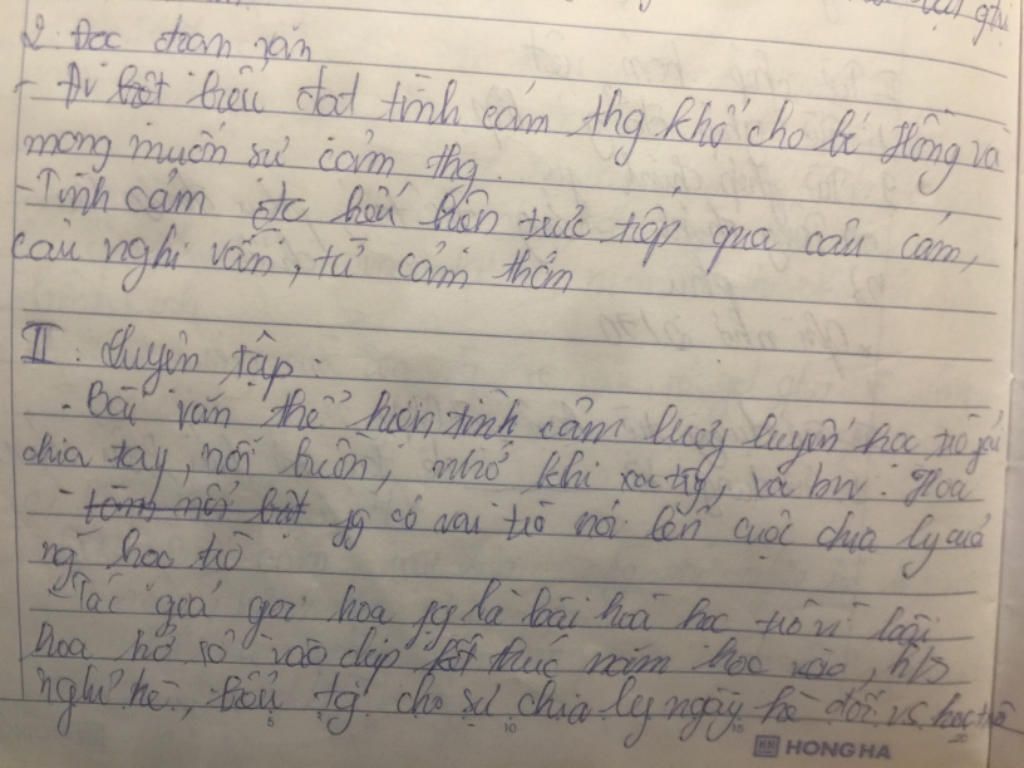 2. Đọc đoạn văn
- Đv biểu đạt tình cảm thg khổ cho bé Hồng và
mong muốn sự cảm thg.
- Tình cảm đc biểu hiện trực tiếp qua câu cảm,
câu nghi vấn, từ cảm thán
II. Luyện tập:
- Bài văn thể hiện tình cảm học trò
chia tay, nỗi buồn, nhớ khi xa trg, và bn. Hoa
pg có vai trò nói lên cuộc chia ly của
ng học trò
- Tác giả gọi hoa pg là loài hoa học trò vì loài
hoa nở rộ vào dịp kết thúc năm học , h/s
nghỉ hè, biểu tg cho sự chia ly ngày hè đối vs học trò
5 10 15 20
HONG HA